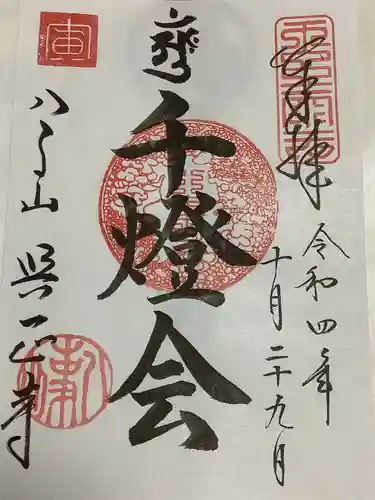 奉拝
令和四年
十月二十九月
千燈会
八事山 興正寺